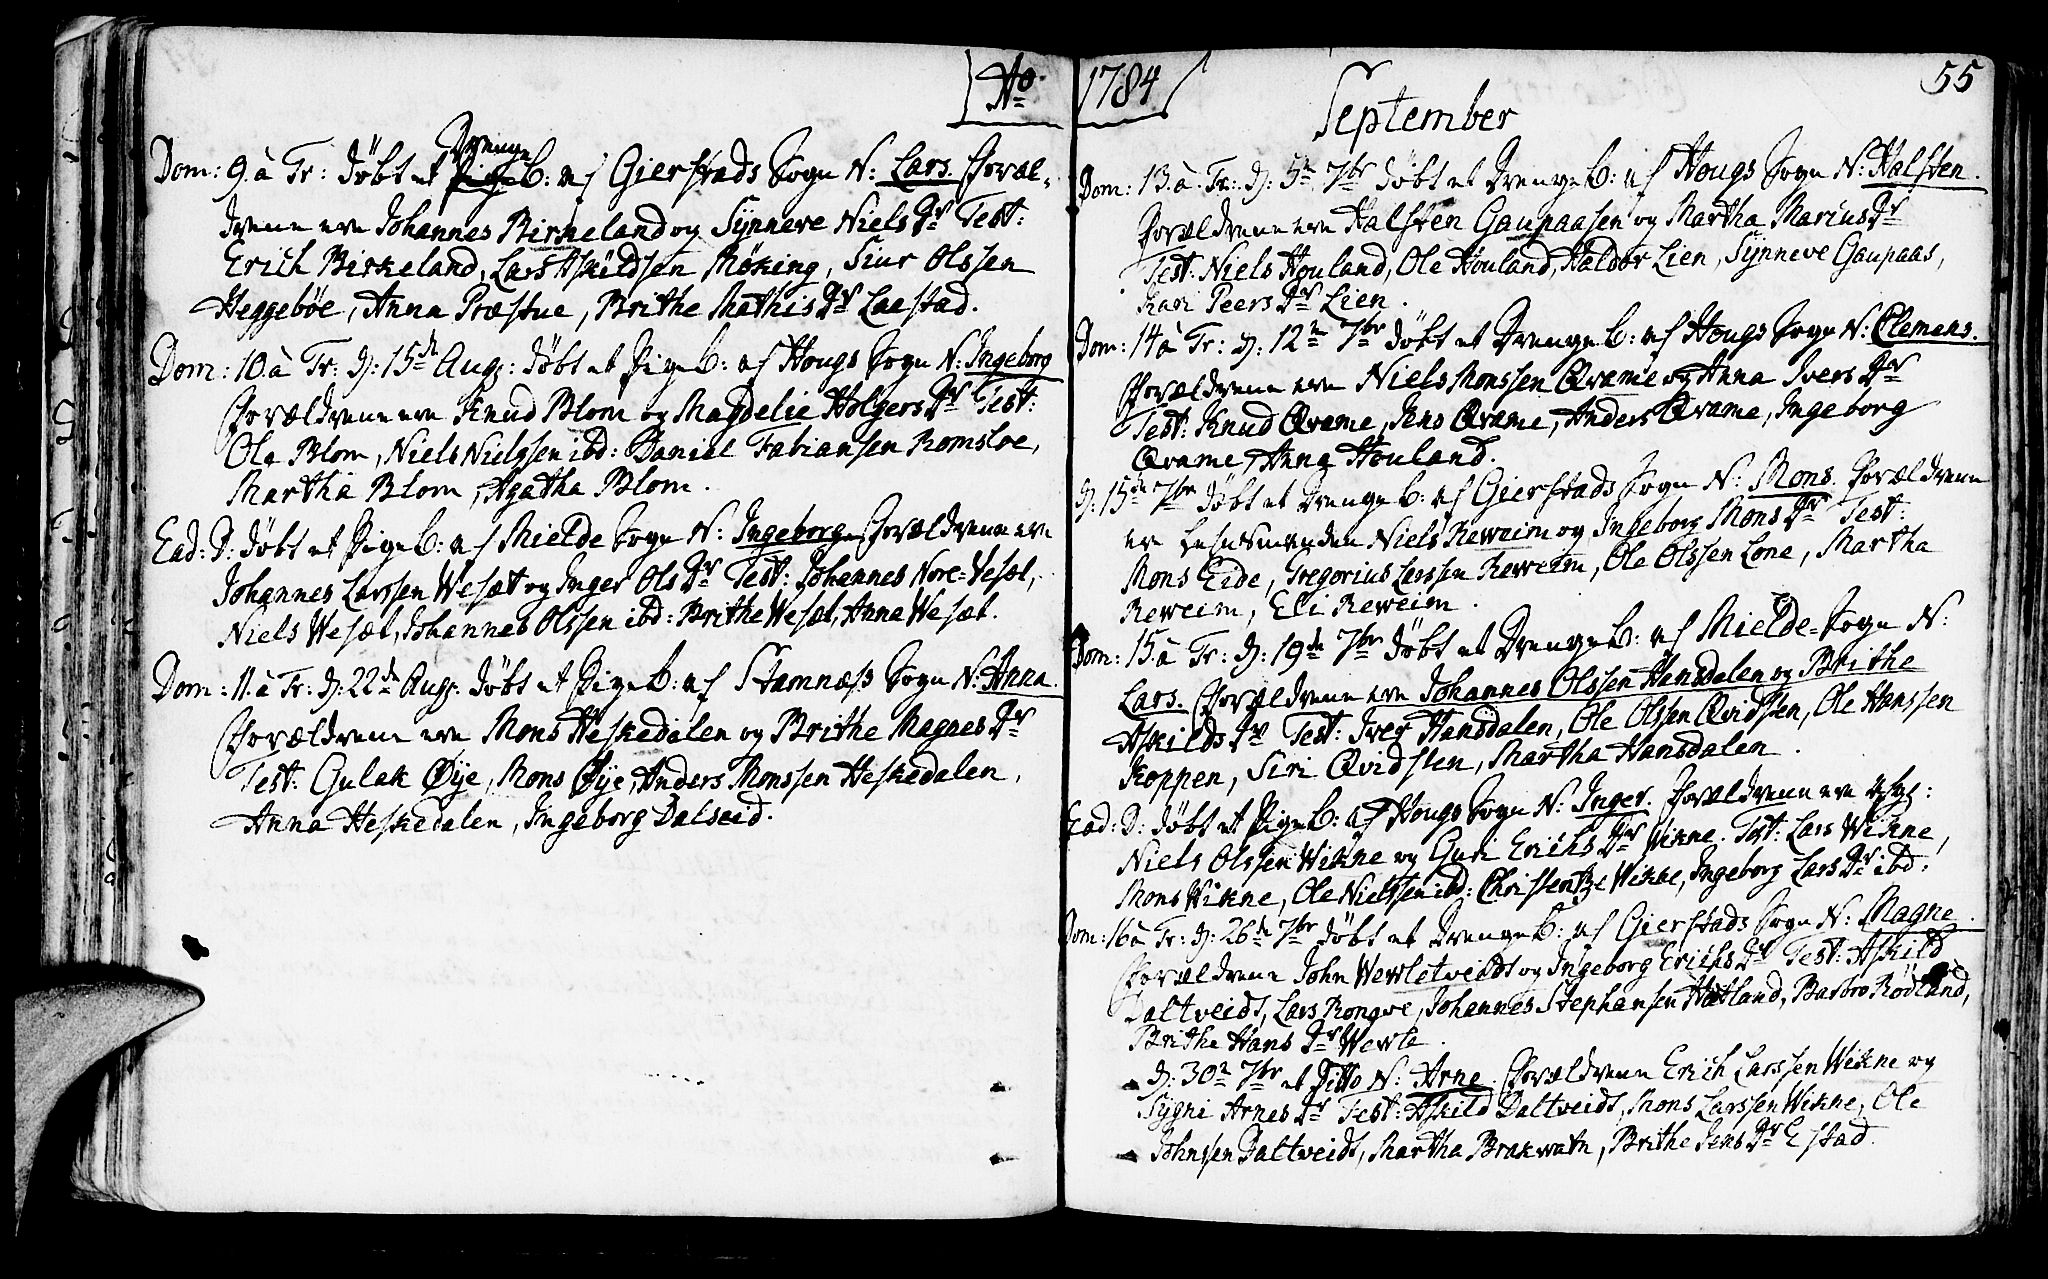 Ao. 1784
Dom: 9. à Tr: døbt et Drenge B: af Gierstads Sogn N: Lars. Foræl-
drene ere Johannes Birkeland og Synneve Niels Dr Test:
Erich Birkeland, Lars Askildsen Møking, Siur Olssen
Heggebøe, Anna Præstue, Brithe Mathis Dr Laestad.
Dom: 10. à Tr: d: 15de Aug: døbt et Pige B: af Hougs Sogn N: Ingeborg
Forældrene ere Knud Blom og Magdelie Holgers Dr Test:
Ole Blom, Niels Nielssen ibd: Daniel Fabiansen Romsloe,
Martha Blom, Agatha Blom.
Ead: D: døbt et Pige B: af Mielde Sogn N: Ingeborg, Forældrene ere
Johannes Larssen Wesæt og Inger Ols Dr Test: Johannes Nore-Vesæt,
Niels Wesæt, Johannes Olssen ibd: Brithe Wesæt, Anna Wesæt.
Dom: 11. à Tr: d: 22de Aug: døbt et Pige B: af Stamnæss Sogn N: Anna.
Forældrene ere Mons Heskedalen og Brithe Magnes Dr
Test: Gulak Øye, Mons Øye, Anders Monssen Heskedalen,
Anna Heskedalen, Ingeborg Dalseid.
55
September
Dom: 13. à Tr: d: 5te 7br døbt et Drenge B: af Hougs Sogn N: Halsten.
Forældrene ere Halsten Gaupaasen og Martha Marius Dr
Test: Niels Houland, Ole Houland, Haldor Lien, Synneve Gaupaas,
Kari Peers Dr Lien.
Dom: 14 à Tr: d: 12te 7br døbt et Drenge B: af Hougs Sogn N: Clemens.
Forældrene ere Niels Monssen Qvame og Anna Ivers Dr
Test: Knud Qvame, Jens Qvame, Anders Qvame, Ingeborg
Qvame, Anna Houland.
d: 15de 7br døbt et Drenge B: af Gierstads Sogn N: Mons. Forældrene
ere Lehnsmanden Niels Reweim og Ingeborg Mons Dr Test:
Mons Eide, Gregorius Larssen Reweim, Ole Olssen Lone, Martha
Reweim, Eli Reweim.
Dom: 15 à Tr: d: 19de 7br døbt et Drenge B: af Mielde-Sogn N:
Lars. Forældrene ere Johannes Olssen Hansdalen og Brithe
Askilds Dr Test: Iver Hansdalen, Ole Olssen Qvidsten, Ole Hanssen
Koppen, Siri Qvidsten, Martha Hansdalen.
Ead: D: døbt et Pige B: af Hougs Sogn N: Inger. Forældrene ere
Niels Olssen Wikne og Guri Erichs Dr Wikne. Test: Lars Wikne,
Mons Wikne, Ole Nielssen ibd: Christentze Wikne, Ingeborg Lars Dr ibd:
Dom: 16 à Tr: d: 26de 7br døbt et Drenge B: af Gierstads Sogn N: Magne.
Forældrene John Wewletveidt og Ingeborg Erichs Dr Test: Askild
Daltveidt, Lars Rongve, Johannes Stephansen Hætland, Barbro Rödland,
Brithe Hans Dr Wewle.
d: 30te 7br et Ditto N: Arne. Forældrene Erich Larssen Wikne og
Sygni Arnes Dr Test: Askild Daltveidt, Mons Larssen Wikne, Ole
Johnsen Daltveidt, Martha Brakwatn, Brithe Jens Dr Estad.